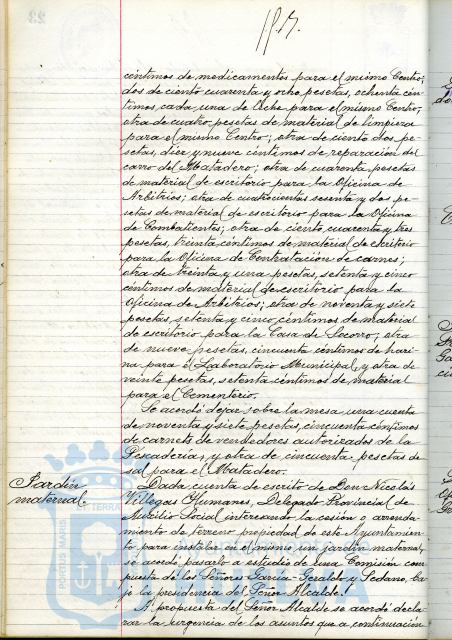 céntimos de medicamentos para el mismo Centro;
dos de ciento cuarenta y ocho pesetas, ochenta cén-
timos cada una de leche para el mismo Centro;
otra de cuatro pesetas de material de limpieza
para el mismo Centro; otra de ciento dos pe-
setas, diez y nueve céntimos de reparación del
carro del Matadero; otra de cuarenta pesetas
de material de escritorio para la Oficina de
Arbitrios; otra de cuatrocientas sesenta y dos pe-
setas de material de escritorio para la Oficina
de Combatientes; otra de ciento cuarenta y tres
pesetas, treinta céntimos de material de escritorio
para la Oficina de Contratación de carnes;
otra de treinta y una pesetas, setenta y cinco
céntimos de material de escritorio para la
Oficina de Arbitrios; otra de noventa y siete
pesetas, setenta y cinco céntimos de material
de escritorio para la Casa de Socorro, otra
de nueve pesetas, cincuenta céntimos de hari-
na para el Laboratorio Municipal, y otra de
veinte pesetas, setenta céntimos de material
para el Cementerio.
Se acordó dejar sobre la mesa una cuenta
de noventa y siete pesetas, cincuenta céntimos
de carnets de vendedores autorizados de la
Pescadería, y otra de cincuenta pesetas de
sal para el Matadero.
Jardín
maternal.
Dada cuenta de escrito de Don Nicolás
Villegas Humanes, Delegado Provincial de
Auxilio Social interesando la cesión o arrenda-
miento de terreno propiedad de este Ayuntamien-
to para instalar en el mismo un jardín maternal,
se acordó pasarlo a estudio de una Comisión com-
puesta de los Señores García-Geraldo y Sedano, ba-
jo la presidencia del Señor Alcalde.
A propuesta del Señor Alcalde se acordó decla-
rar la urgencia de los asuntos que a continuación
PORTUS MARIS
TERRA